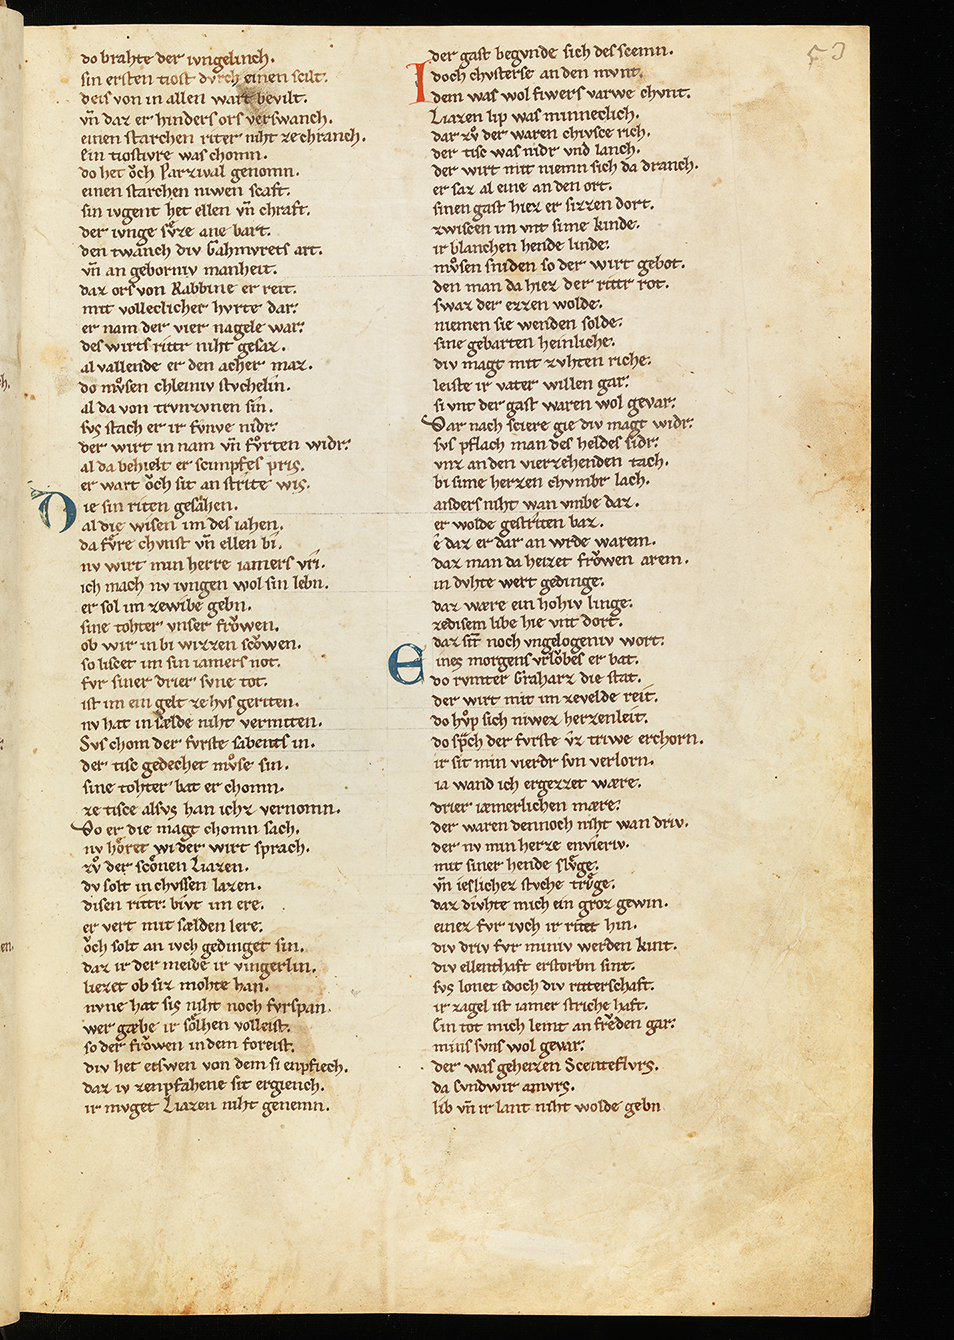 53
do brahte der ivngelinch.
sin ersten tiost dvrch einen scilt.
deis von in allen wart bevilt.
vn̄ daz er hinders ors verswanch.
einen starchen riter niht ze chranch.
Ein tiostivre was chomn.
do het oͮch Parzival genomn.
einen starchen niwen scaft.
sin ivgent het ellen vn̄ chraft.
der ivnge sv̊ze ane bart.
den twanch div Gahmvrets art.
vn̄ an geborniv manheit.
daz ors von Rabbine er reit.
mit volleclicher hvrte dar:
er nam der vier nagele war:
des wirts riter niht gesaz.
al vallende er den acher maz.
do mv̊sen chleiniv stvchelin.
al da von trvnzvnen sin.
svs stach er ir fvnve nidr:
der wirt in nam vn̄ fv̊rten widr:
al da behielt er scimpfes pris.
er wart oͮch sit an strite wis.
Die sin riten gesahen.
al die wisen im des iahen.
da fv̊re chvnst vn̄ ellen bi.
nv wirt min herre iamers vri.
ich mach nv ivngen wol sin lebn.
er sol im zewibe gebn.
sine tohter vnser froͮwen.
ob wir in bi wizzen scoͮwen.
so liscet im sin iamers not.
fvr siner drier svne tot.
ist im ein gelt ze hvs geriten.
nv hat in sælde niht vermiten.
Svs chom der fvrste sabents in.
der tisc gedechet mv̊se sin.
sine tohter bat er chomn.
ze tisce alsvs han ichz vernomn.
Do er die magt chomn sach.
nv hoͤret wi der wirt sprach.
zv̊ der scoͤnen Liazen.
dv solt in chvssen lazen.
disen riter: bivt im ere.
er vert mit sælden lere.
oͮch solt an ivch gedinget sin.
daz ir der meide ir vingerlin.
liezet ob siz mohte han.
nvne hat sis niht noch fvrspan.
wer gæbe ir soͤlhen volleist.
so der froͮwen in dem foreist.
div het etswen von dem si enpfiech.
daz iv zenpfahene sit ergiench.
ir mvget Liazen niht genemn.
der gast begvnde sich des scemn.
Idoch chvsterse an den mvnt.
dem was wol fiwers varwe chvnt.
Liazen lip was minneclich.
dar zv̊ der waren chivsce rich.
der tisc was nidr vnd lanch.
der wirt mit niemn sich da dranch.
er saz al eine an den ort.
sinen gast hiez er sizzen dort.
zwiscen im vnt sime kinde.
ir blanchen hende linde.
mv̊sen sniden so der wirt gebot.
den man da hiez der riter rot.
swaz der ezzen wolde.
niemen sie wenden solde.
sine gebarten heinliche.
div magt mit zvhten riche.
leiste ir vater willen gar.
si vnt der gast waren wol gevar.
Dar nach sciere gie div magt widr:
svs pflach man des heldes sidr:
vnz an den vierzehenden tach.
bi sime herzen chvmbr lach.
anders niht wan vmbe daz.
er wolde gestriten baz.
e daz er dar an wrde warem.
daz man da heizet froͮwen arem.
in dvhte wert gedinge.
daz wære ein hohiv linge.
zedisem libe hie vnt dort.
daz sīt noch vngelogeniv wort.
Eines morgens vrloͮbes er bat.
do rvmter Graharz die stat.
der wirt mit im zevelde reit.
do hv̊p sich niwez herzenleit.
do sp̄ch der fvrste v̄z triwe erchorn.
ir sit min vierdr svn verlorn.
ia wand ich ergezzet wære.
drier iæmerlichen mære.
der waren dennoch niht wan driv.
der nv min herze envieriv.
mit siner hende slv̊ge.
vn̄ ieslichez stvche trv̊ge.
daz divhte mich ein groz gewin.
einez fvr ivch ir ritet hin.
div driv fvr miniv werden kint.
div ellenthaft erstorbn sint.
svs lonet idoch div riterschaft.
ir zagel ist iamer striche haft.
Ein tot mich lemt an freͮden gar.
mins svns wol gevar.
der was geheizen Scenteflvrs.
da Cvndwir amvrs.
lib vn̄ ir lant niht wolde gebn